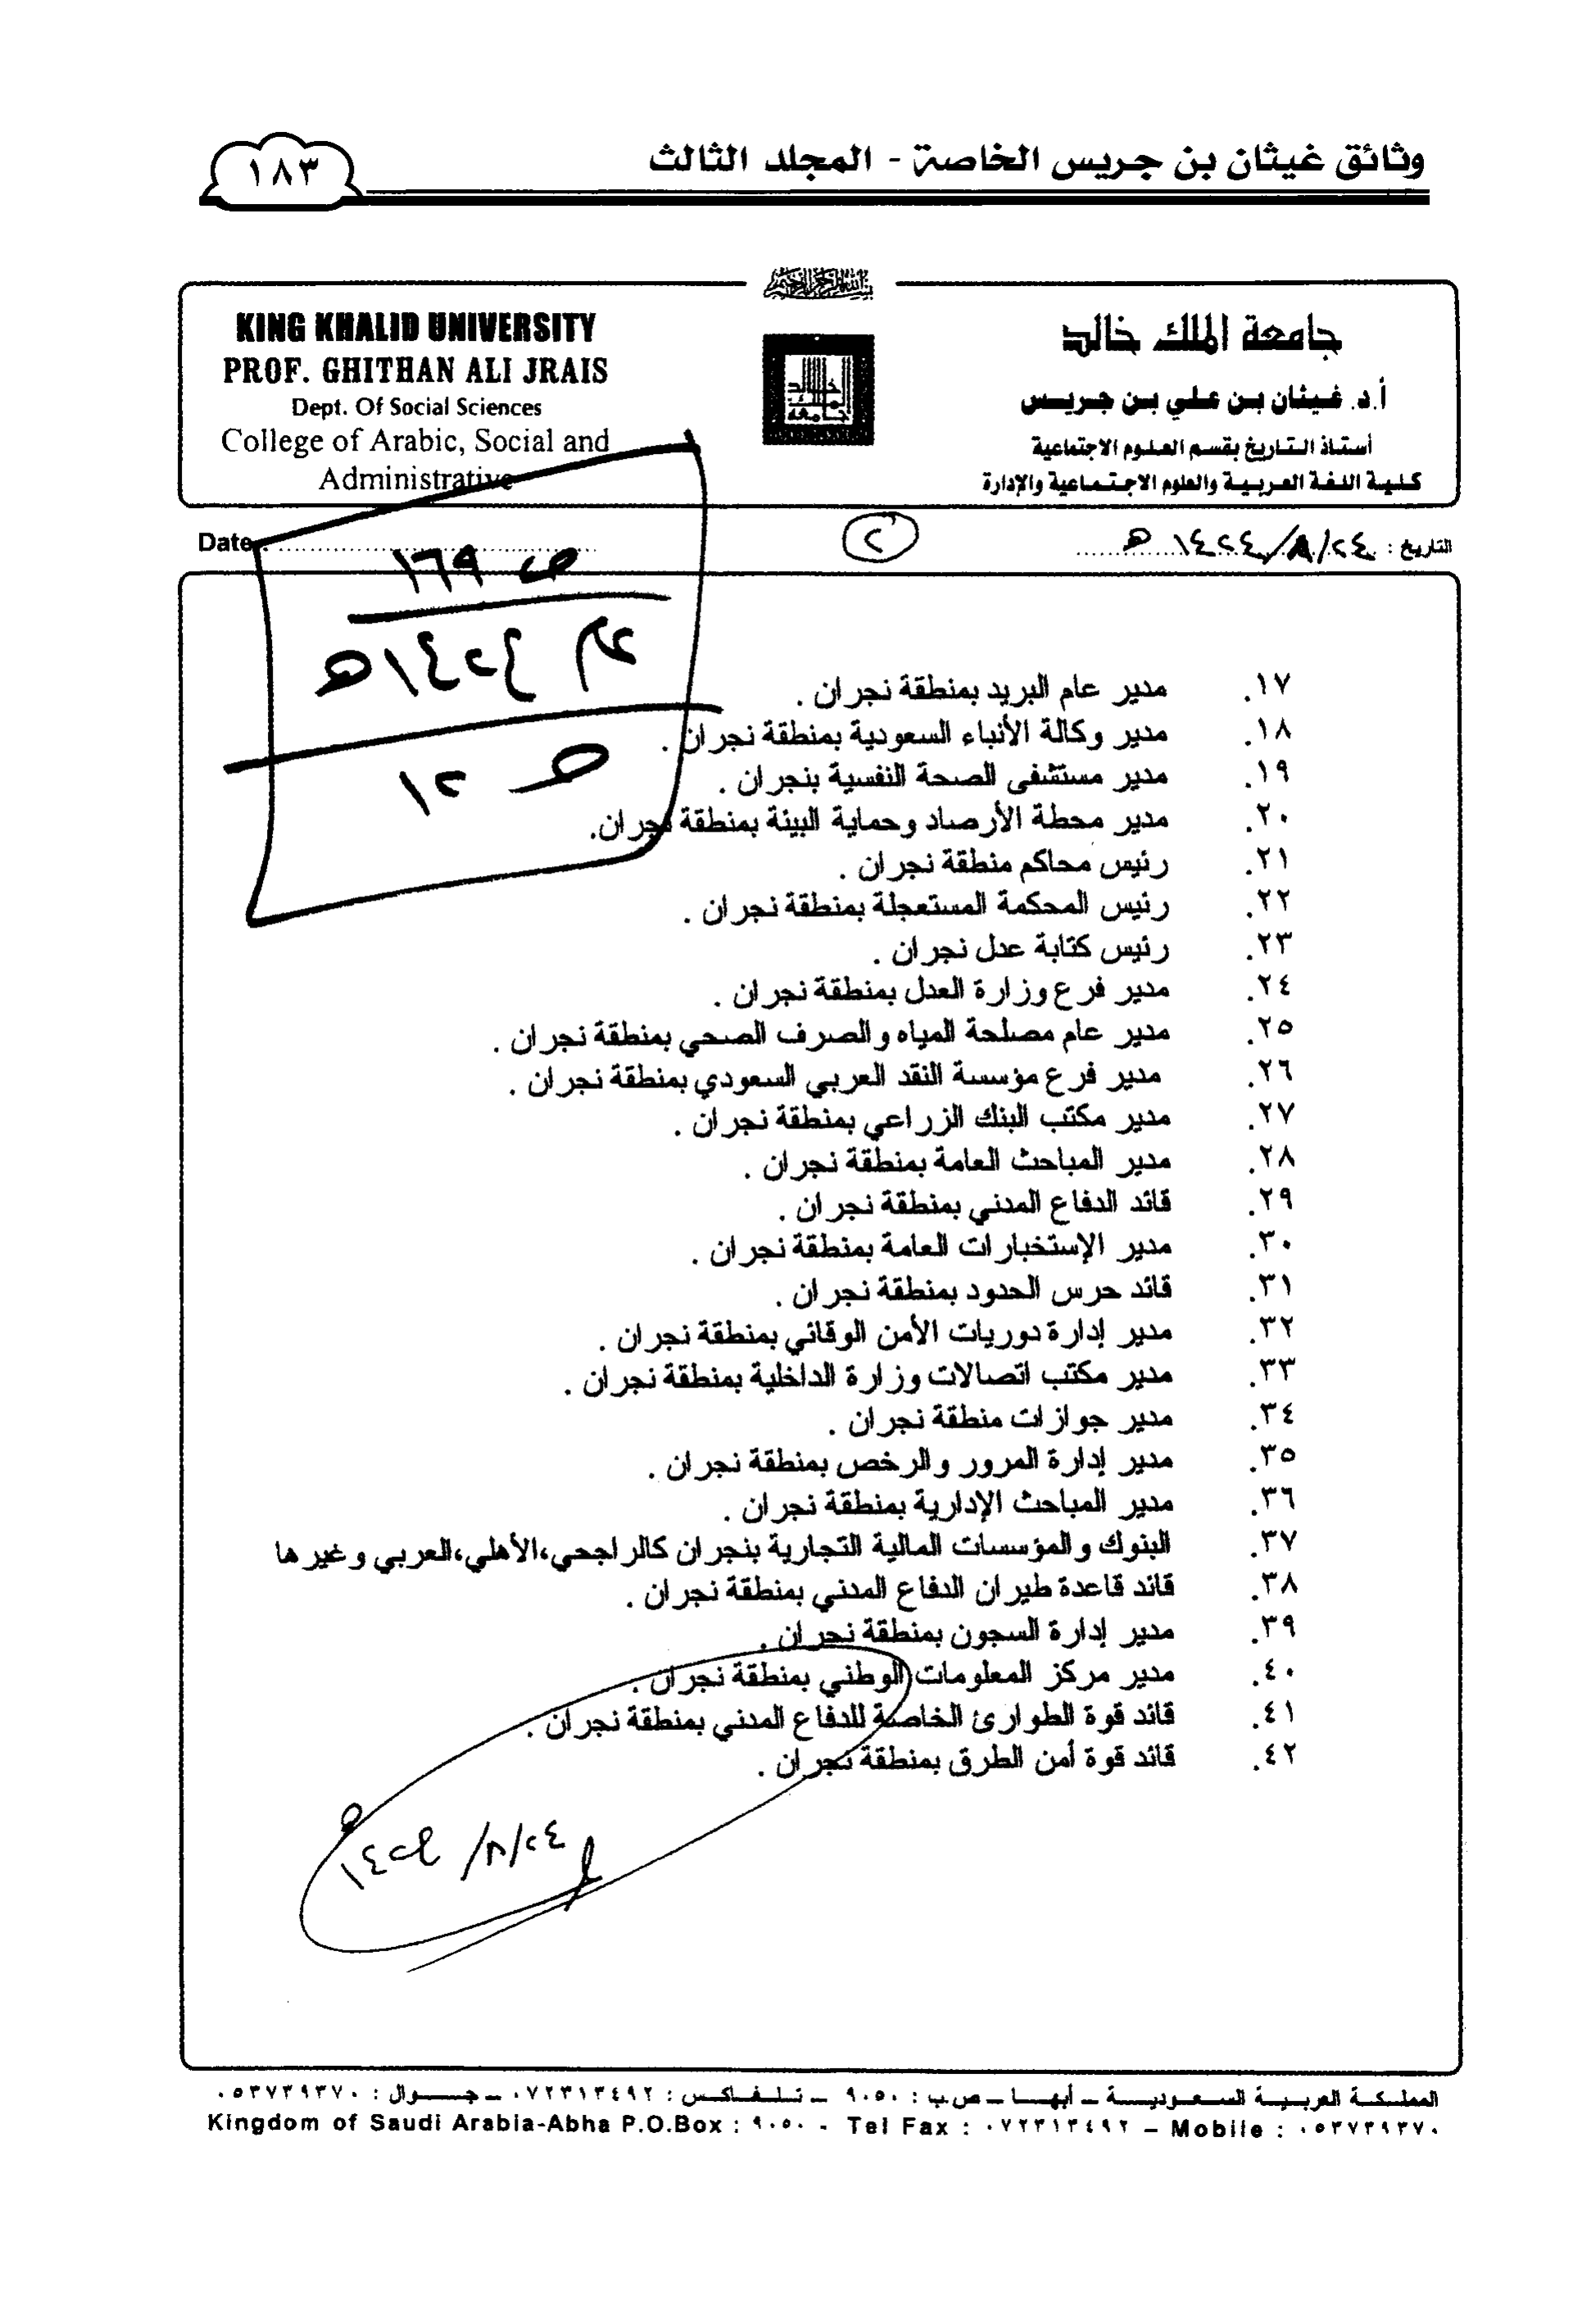 وثائق غيثان بن جريس الخاصة - المجلد الثالث
١٨٣
بسم الله الرحمن الرحيم
KING KHALID UNIVERSITY
PROF. GHITHAN ALI JRAIS
Dept. Of Social Sciences
College of Arabic, Social and
Administrative
جامعة الملك خالد
جامعة الملك خالد
أ.د. غيثان بن علي بن جريس
أستاذ التاريخ بقسم العلوم الاجتماعية
كلية اللغة العربية والعلوم الاجتماعية والإدارة
التاريخ : ٢٤/٨/١٤٢٤ هـ
٢
Date :
ص ١٦٩
١٤٢٤ هـ
ص ٢١
١٧. مدير عام البريد بمنطقة نجران .
١٨. مدير وكالة الأنباء السعودية بمنطقة نجران .
١٩. مدير مستشفى الصحة النفسية بنجران .
٢٠. مدير محطة الأرصاد وحماية البيئة بمنطقة نجران.
٢١. رئيس محاكم منطقة نجران .
٢٢. رئيس المحكمة المستعجلة بمنطقة نجران .
٢٣. رئيس كتابة عدل نجران .
٢٤. مدير فرع وزارة العدل بمنطقة نجران .
٢٥. مدير عام مصلحة المياه والصرف الصحي بمنطقة نجران .
٢٦. مدير فرع مؤسسة النقد العربي السعودي بمنطقة نجران .
٢٧. مدير مكتب البنك الزراعي بمنطقة نجران .
٢٨. مدير المباحث العامة بمنطقة نجران .
٢٩. قائد الدفاع المدني بمنطقة نجران .
٣٠. مدير الإستخبارات العامة بمنطقة نجران .
٣١. قائد حرس الحدود بمنطقة نجران .
٣٢. مدير إدارة دوريات الأمن الوقائي بمنطقة نجران .
٣٣. مدير مكتب اتصالات وزارة الداخلية بمنطقة نجران .
٣٤. مدير جوازات منطقة نجران .
٣٥. مدير إدارة المرور والرخص بمنطقة نجران .
٣٦. مدير المباحث الإدارية بمنطقة نجران .
٣٧. البنوك والمؤسسات المالية التجارية بنجران كالراجحي،الأهلي،العربي وغيرها
٣٨. قائد قاعدة طيران الدفاع المدني بمنطقة نجران .
٣٩. مدير إدارة السجون بمنطقة نجران .
٤٠. مدير مركز المعلومات الوطني بمنطقة نجران .
٤١. قائد قوة الطوارئ الخاصة للدفاع المدني بمنطقة نجران .
٤٢. قائد قوة أمن الطرق بمنطقة نجران .
٢٤/٨/١٤٢٤ هـ
المملكة العربية السعودية – أبها – ص.ب : ٩٠٥٠ – تلفاكس : ٠٧٢٣١٣٤٩٢ – جوال : ٠٥٣٧٣٩٣٧٠
Kingdom of Saudi Arabia-Abha P.O.Box : ٩٠٥٠ - Tel Fax : ٠٧٢٣١٣٤٩٢ – Mobile : ٠٥٣٧٣٩٣٧٠